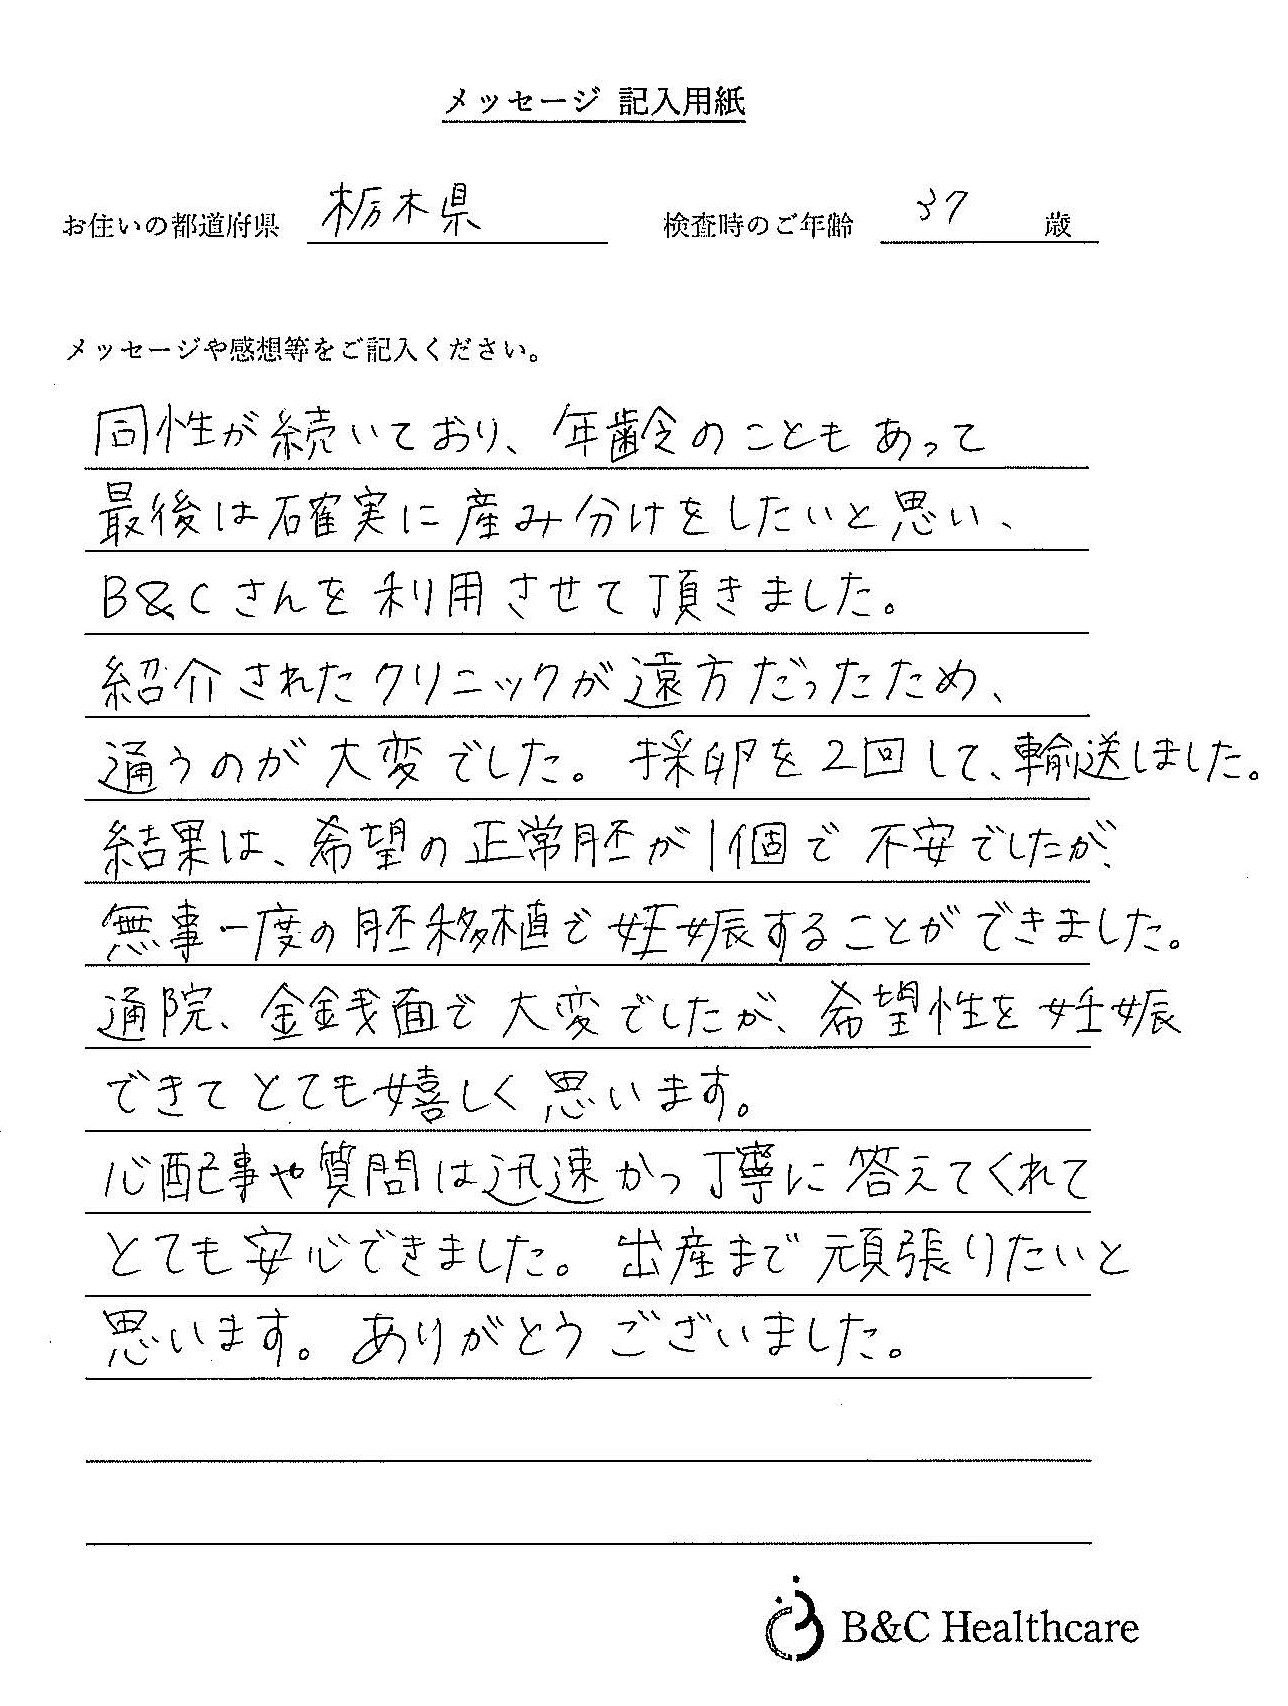 メッセージ 記入用紙
お住いの都道府県 栃木県 検査時のご年齢 37 歳
メッセージや感想等をご記入ください。
同性が続いており、年齢のこともあって
最後は確実に産み分けをしたいと思い、
B&Cさんを利用させて頂きました。
紹介されたクリニックが遠方だったため、
通うのが大変でした。採卵を2回して、輸送しました。
結果は、希望の正常胚が1個で不安でしたが、
無事一度の胚移植で妊娠することができました。
通院、金銭面で大変でしたが、希望性を妊娠
できてとても嬉しく思います。
心配事や質問は迅速かつ丁寧に答えてくれて
とても安心できました。出産まで頑張りたいと
思います。ありがとうございました。
B&C Healthcare